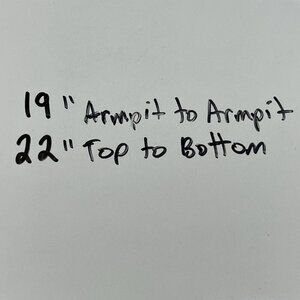 19" Armpit to Armpit
22" Top to Bottom